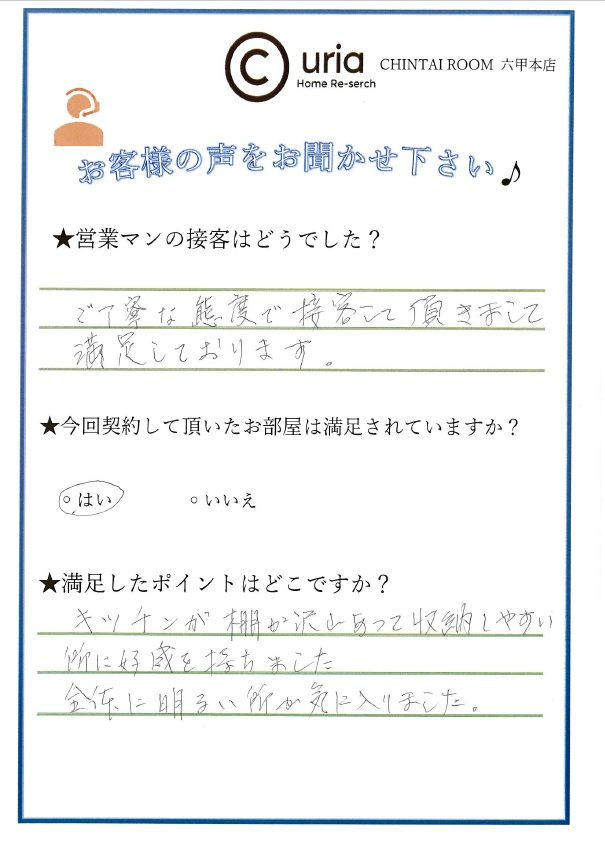 Curia
Home Re-serch
CHINTAI ROOM 六甲本店
お客様の声をお聞かせ下さい♪
★営業マンの接客はどうでした？
ご丁寧な態度で接客して頂きまして
満足しております。
★今回契約して頂いたお部屋は満足されていますか？
○はい ○いいえ
★満足したポイントはどこですか？
キッチンが棚が沢山あって収納しやすい
所に好感を持ちました
全体に明るい所が気に入りました。